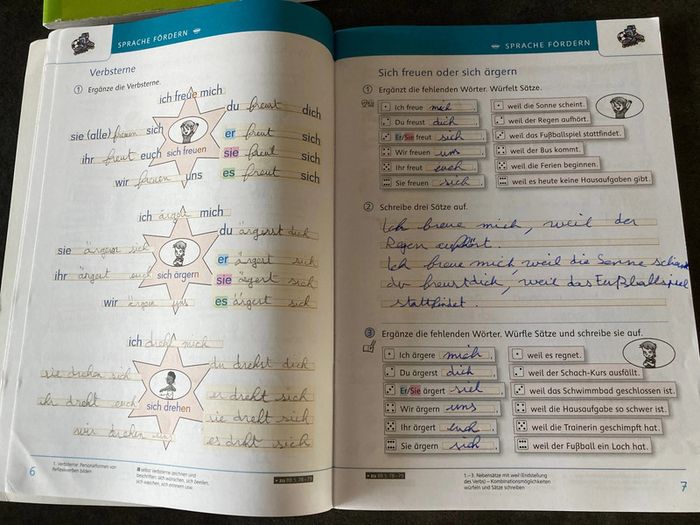 SPRACHE FÖRDERN
Verbsterne
1 Ergänze die Verbsterne.
ich freue mich
du freust dich
sie (alle) freuen sich
er freut sich
ihr freut euch
sich freuen
sie freut sich
wir freuen uns
es freut sich
ich ärgere mich
du ärgerst dich
sie ärgern sich
er ärgert sich
ihr ärgert euch
sich ärgern
sie ärgert sich
wir ärgern uns
es ärgert sich
ich dreht mich
du drehst dich
sie drehen sich
er dreht sich
ihr dreht euch
sich drehen
sie dreht sich
wir drehen uns
es dreht sich
6
1. Verbsterne: Personalformen von
Reflexivverben bilden
selbst Verbsterne zeichnen und
beschriften: sich wünschen, sich beeilen,
sich waschen, sich erinnern usw.
SPRACHE FÖRDERN
Sich freuen oder sich ärgern
1 Ergänzt die fehlenden Wörter. Würfelt Sätze.
Ich freue mich , weil die Sonne scheint.
Du freust dich , weil der Regen aufhört.
Er/Sie freut sich , weil das Fußballspiel stattfindet.
Wir freuen uns , weil der Bus kommt.
Ihr freut euch , weil die Ferien beginnen.
Sie freuen sich , weil es heute keine Hausaufgaben gibt.
2 Schreibe drei Sätze auf.
Ich freue mich, weil der
Regen aufhört.
Ich freue mich, weil die Sonne
du freust dich, weil das Fußballspiel
stattfindet.
3 Ergänze die fehlenden Wörter. Würfle Sätze und schreibe sie auf.
Ich ärgere mich , weil es regnet.
Du ärgerst dich , weil der Schach-Kurs ausfällt.
Er/Sie ärgert sich , weil das Schwimmbad geschlossen ist.
Wir ärgern uns , weil die Hausaufgabe so schwer ist.
Ihr ärgert euch , weil die Trainerin geschimpft hat.
Sie ärgern sich , weil der Fußball ein Loch hat.
1.–3. Nebensätze mit weil (Endstellung
des Verbs) – Kombinationsmöglichkeiten
würfeln und Sätze schreiben
7